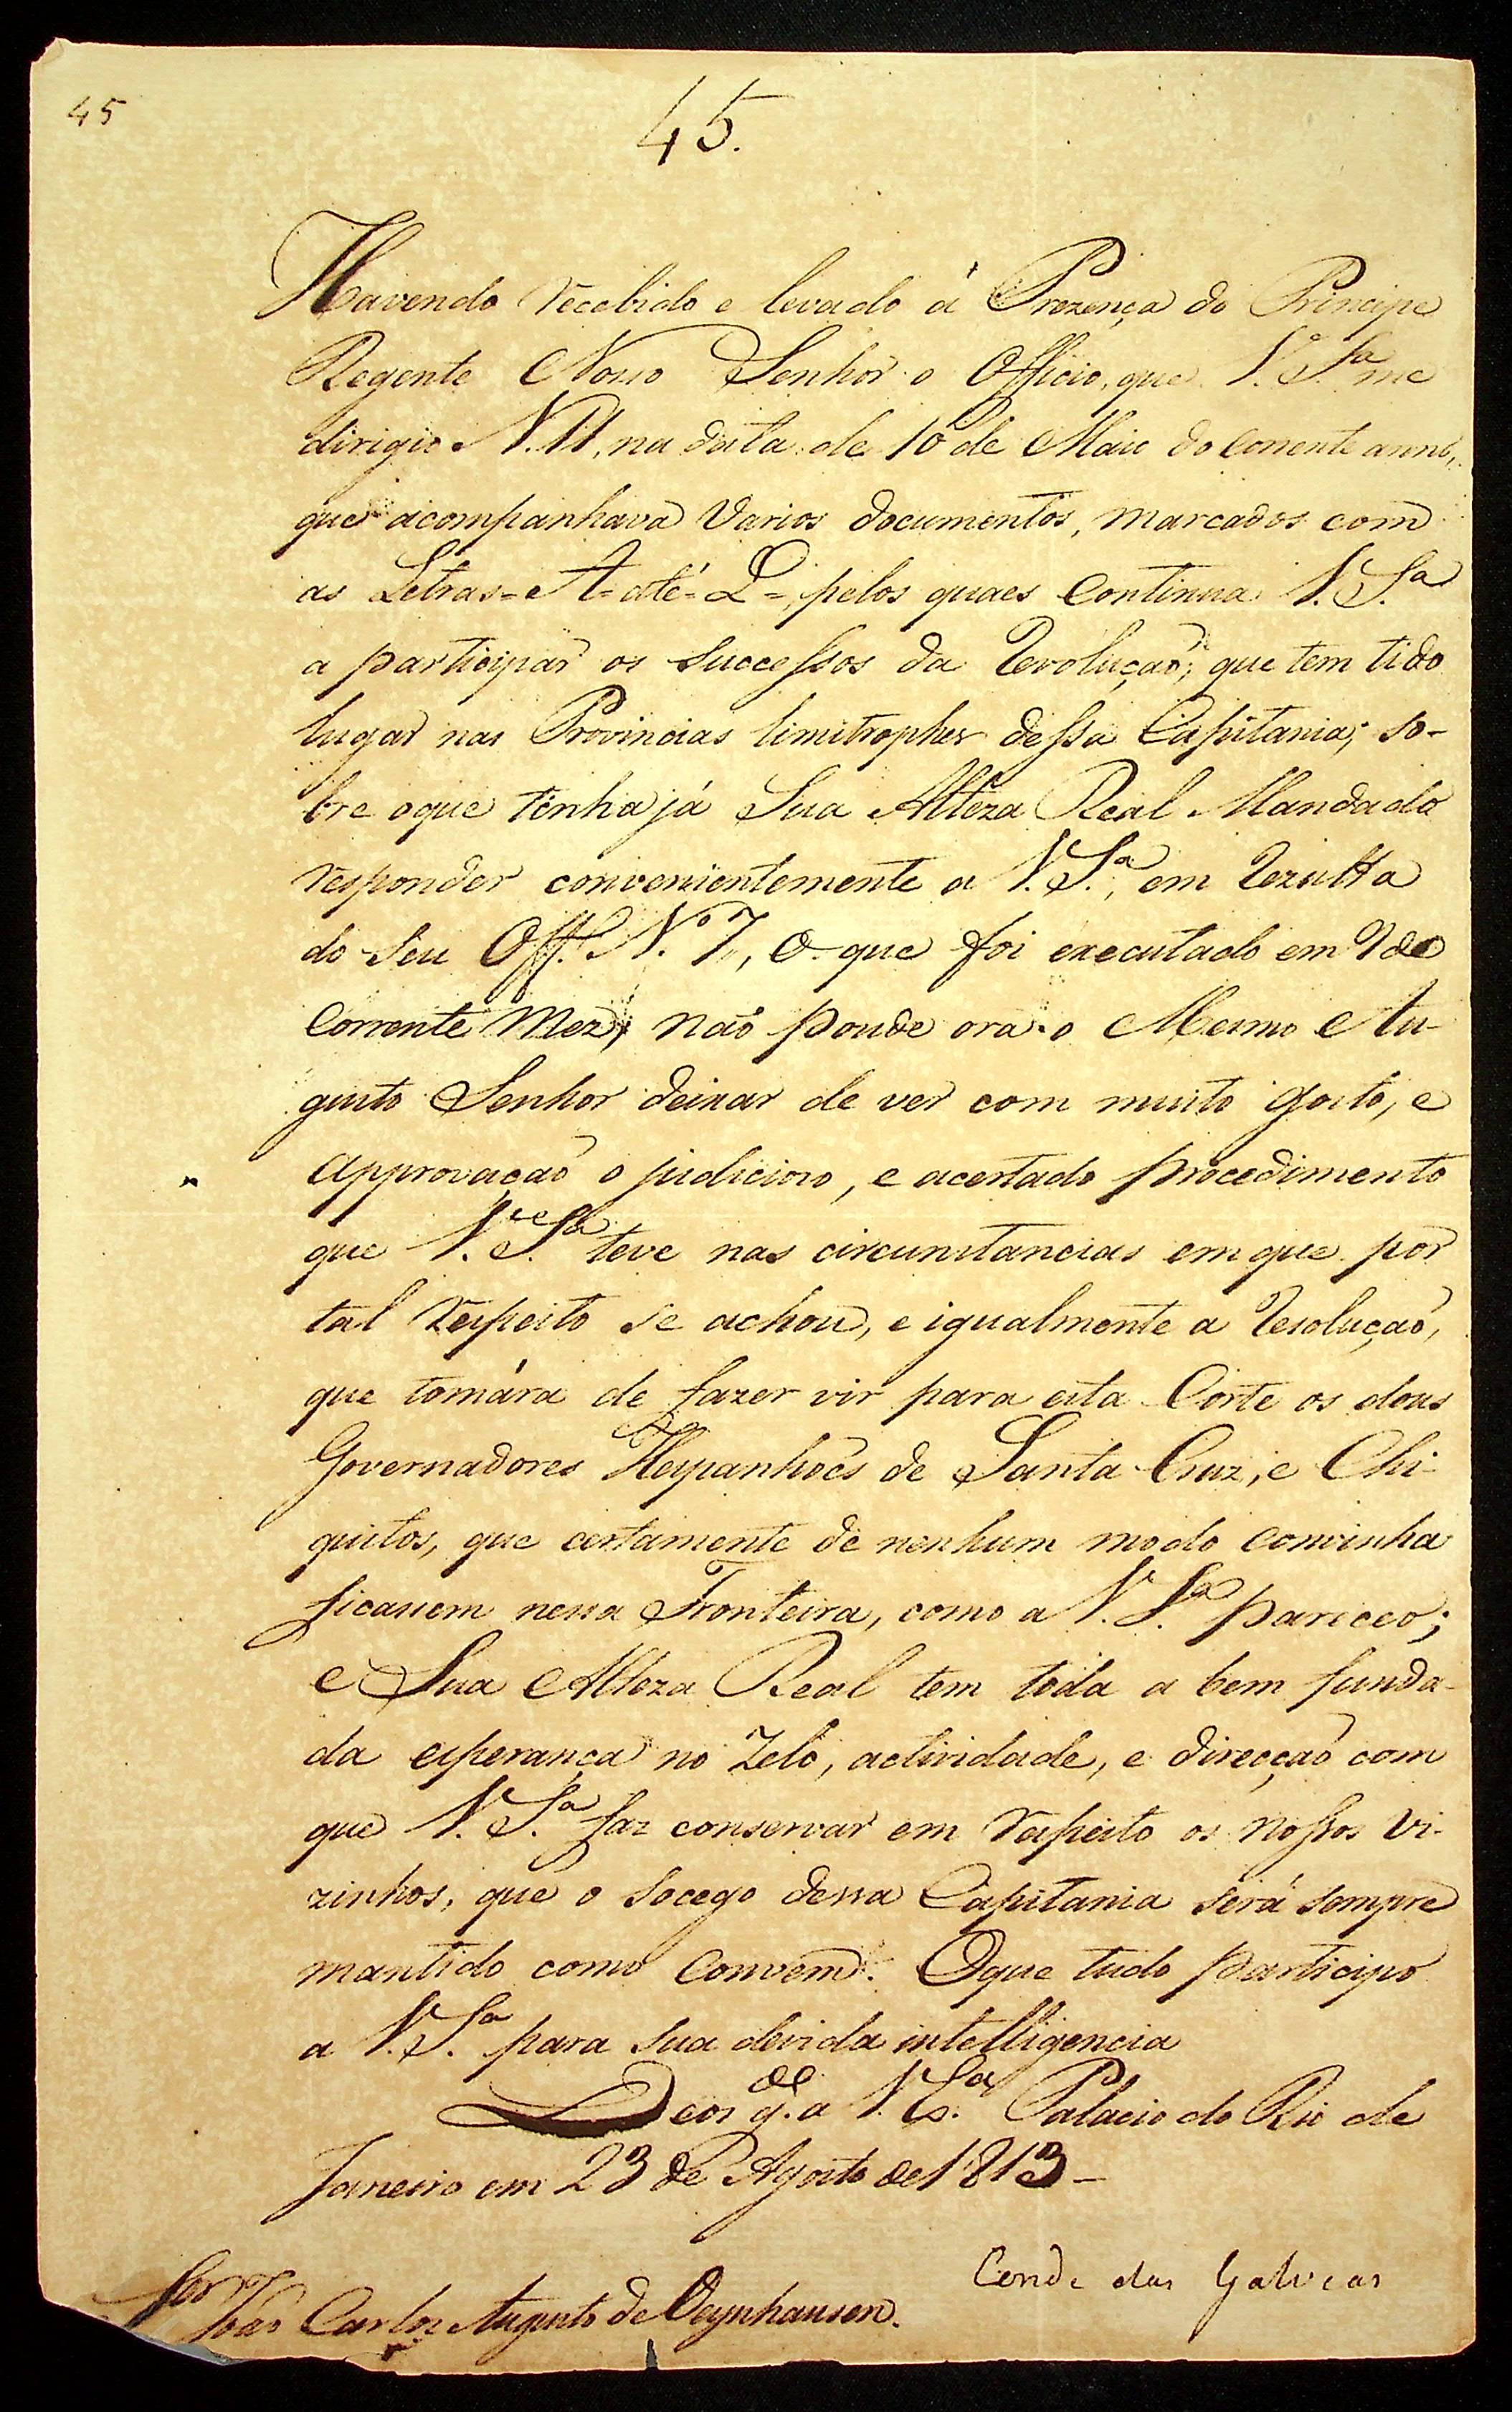 45
45.
Havendo recebido e levado á Prezença do Principe
Regente Nosso Senhor o Officio, que V. S.ª me
dirigio N. 11, na data de 10 de Maio do Corrente anno,
que acompanhava varios documentos, marcados com
as Letras = A = até = L =, pelos quaes Continua V. S.ª
a participar os Successos da Revolução, que tem tido
lugar nas Provincias limitrophes dessa Capitania; so-
bre o que tinha já Sua Alteza Real Mandado
responder convenientemente a V. S.ª, em Rezulta
do Seu Off.º N.º 7, o que foi executado em 9 do
Corrente Mez; não poude ora o Mesmo Au-
gusto Senhor deixar de ver com muito gosto, e
approvação o judicioso, e acertado procedimento
que V. S.ª teve nas circunstancias em que por
tal respeito se achou, e igualmente a Resolução,
que tomára de fazer vir para esta Corte os dous
Governadores Hespanhoes de Santa Cruz, e Chi-
quitos, que certamente de nenhum modo convinha
ficassem nessa Fronteira, como a V. S.ª pareceo;
e Sua Alteza Real tem toda a bem funda-
da esperança no Zelo, actividade, e direcção com
que V. S.ª faz conservar em respeito os nossos vi-
zinhos, que o Socego dessa Capitania será sempre
mantido como Convem. O que tudo participo
a V. S.ª para sua devida intelligencia
Deos g.de a V. S.ª Palacio do Rio de
Janeiro em 23 de Agosto de 1813 -
Conde das Galveas
Snr João Carlos Augusto de Oeynhausen.